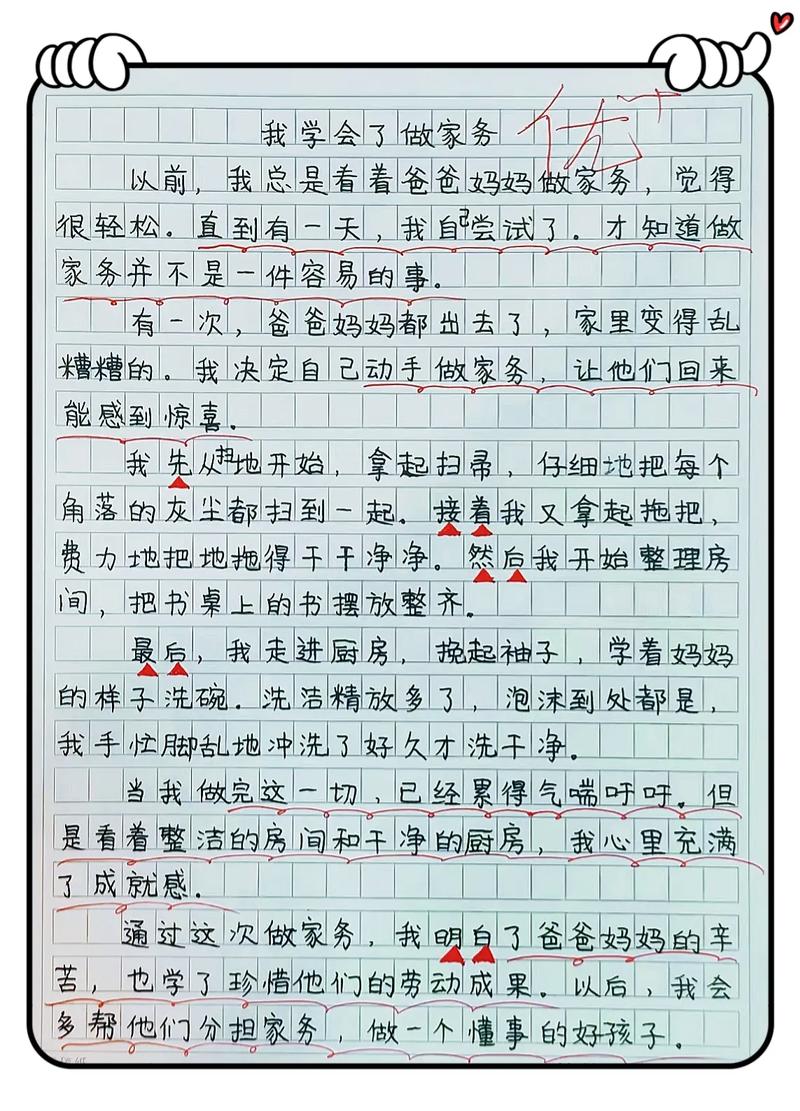 我学会了做家务
优+
以前，我总是看着爸爸妈妈做家务，觉得
很轻松。直到有一天，我自己尝试了。才知道做
家务并不是一件容易的事。
有一次，爸爸妈妈都出去了，家里变得乱
糟糟的。我决定自己动手做家务，让他们回来
能感到惊喜。
我先从扫地开始，拿起扫帚，仔细地把每个
角落的灰尘都扫到一起。接着我又拿起拖把，
费力地把地拖得干干净净。然后我开始整理房
间，把书桌上的书摆放整齐。
最后，我走进厨房，挽起袖子，学着妈妈
的样子洗碗。洗洁精放多了，泡沫到处都是，
我手忙脚乱地冲洗了好久才洗干净。
当我做完这一切，已经累得气喘吁吁。但
是看着整洁的房间和干净的厨房，我心里充满
了成就感。
通过这次做家务，我明白了爸爸妈妈的辛
苦，也学了珍惜他们的劳动成果。以后，我会
多帮他们分担家务，做一个懂事的好孩子。